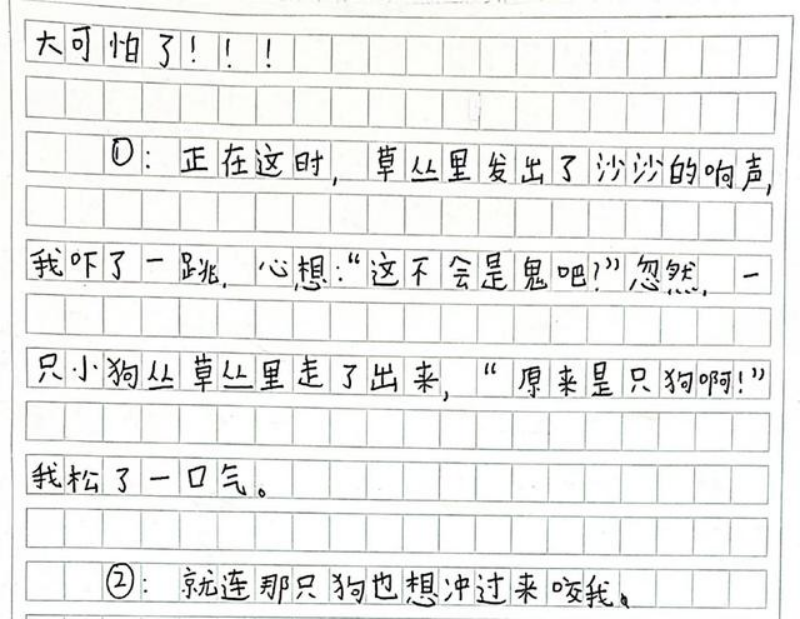 大可怕了！！！
①：正在这时，草丛里发出了沙沙的响声，
我吓了一跳，心想：“这不会是鬼吧？”忽然，一
只小狗丛草丛里走了出来，“原来是只狗啊！”
我松了一口气。
②：就连那只狗也想冲过来咬我。